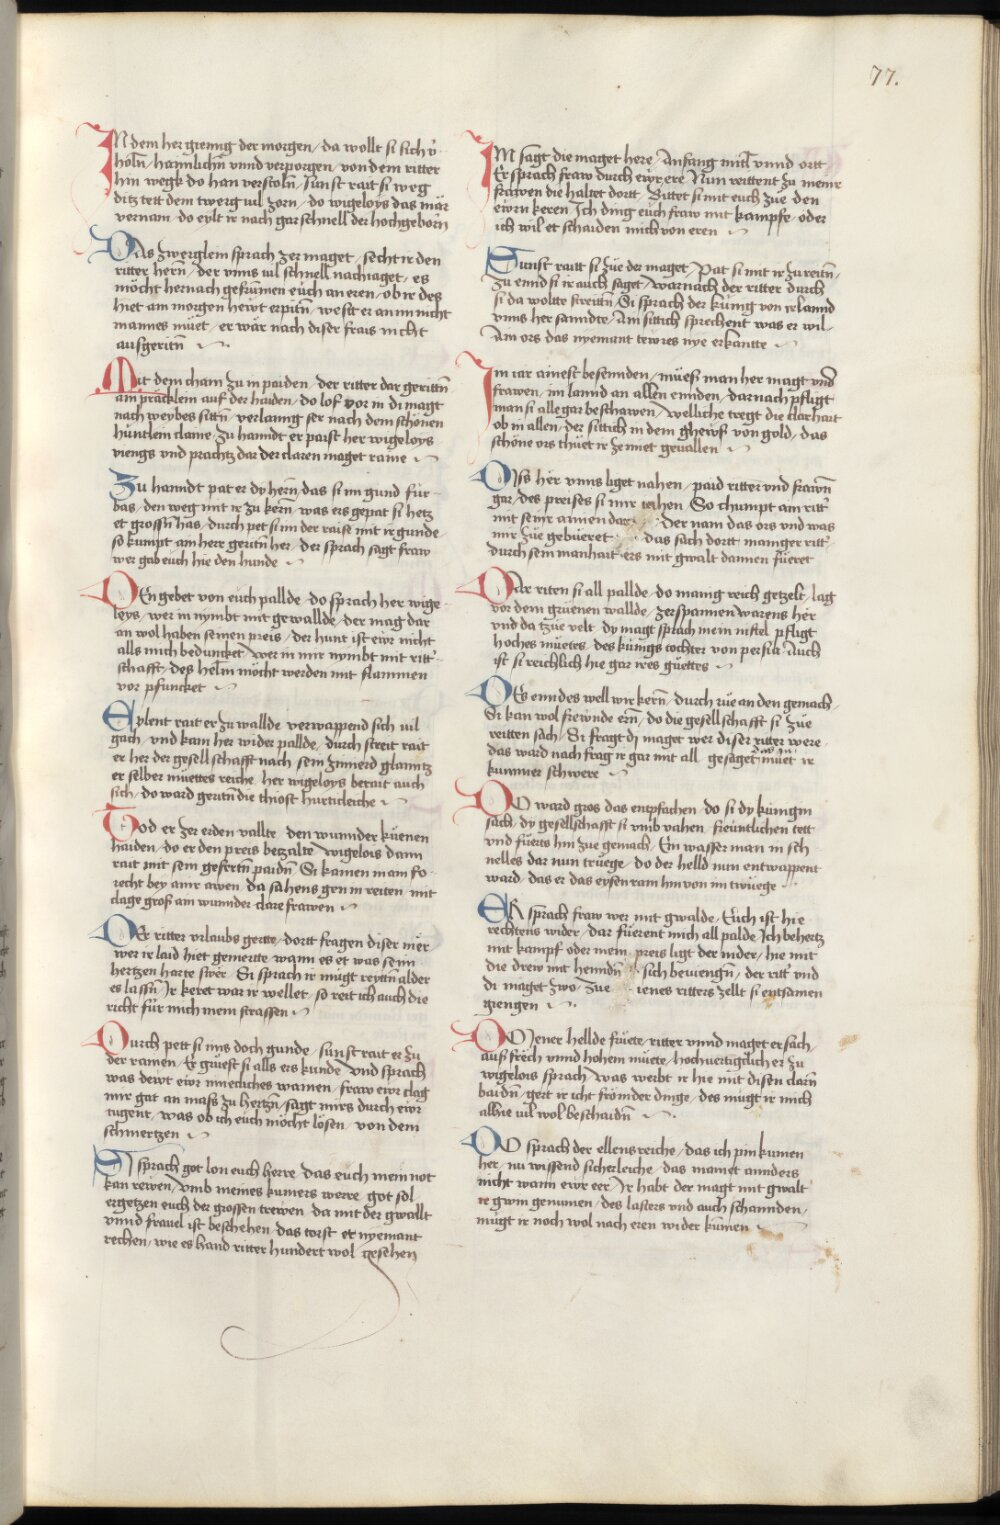 77.
IN dem her gienng der morgen / da wollt si sich v̈
holn̄ / haimlichn̄ vnnd verporgen / von dem ritter
hin wegk do han verstoln̄ / Sunst rait si weg
ditz tett dem twerg vil zorn / do wigeloys das mär
vernam / do eylt ir nach gar schnell der hochgeborn
DAs zwerglein sprach zer maget / secht ir den
ritter hern̄ / der vnns vil schnell nachiaget / es
möcht hernach gefrumen euch an eren / ob ir des
hiet am morgen hewt erpitn̄ / west er an im nicht
mannes müet / er wär nach diser frais nicht
ausgeritn̄
Mit dem cham zu in paiden / der ritter dar gerittn̄
am präcklein auf der haiden / do lof vor in di magt
nach weybes sittn̄ / verlanng ser nach dem schönen
hüntlein claine / zu hanndt er paist her wigeloys
viengs vnd prachtz dar der claren maget raine
Zu hanndt pat er dy hern̄ / das si im gund für
bas / den weg mit ir zu kern̄ / was ers gepat si hetz
et grossn̄ has / durch pet si im der raise mit ir gunde
so kumpt am herr geritn̄ her / der sprach sagt fraw
wer gab euch hie den hunde
DEn gebet von euch pallde / do sprach her wige
loys / wer in nymbt mit gewallde / der mag dar
an wol haben seinen preis / der hunt ist ewr nicht
alls mich beduncket / wer in mir nymbt mit ritt̄
schafft / des helm̄ möcht werden mit flammen
vor pfuncket
Eplent rait er zu wallde / verwappend sich vil
gach / vnd kam her wider pallde / durch streit rait
er her der gesellschafft nach / sein zimierd glanntz
er selber müettes reiche / her wigeloys berait auch
sich / do ward geritn̄ die thiost hurticleiche
Tod er zer erden vallte / den wunnder küenen
haiden / do er den preis bezallte / wigelois dann
rait mit sein gefertn̄ paidn̄ / Si kamen in am fo
recht bey ainr awen / da sahens gen in reiten mit
clage groß am wunnder clare frawen
DEr ritter vrlaubs gertte / dortt fragen diser mer
wer ir laid hiet gemertte / wann es et was seim
hertzen hartte swer / Si sprach ir mügt reyttn̄ alder
es lassn̄ / Ir keret war ir wellet / so reit ich auch die
richt für mich mein strassen
Durch pett si ims doch gunde / sunst rait er zu
der rainen / Er grüest si alls ers kunde / vnd sprach
was dewt ewr innecliches wainen / fraw ewr clag
mir gat an mass zu hertzn̄ / sagt mirs durch ewr
tugent / was ob ich euch möcht lösen / von dem
schmertzen
SI sprach got lon euch herre / das euch mein not
kan rewen / vmb meines kumers werre / got sol
ergetzen euch der grossen trewen / da mit der gwallt
vnnd fräuel ist beschehen / das torst et nyemant
rechen / wie es hand ritter hundert wol gesehen
IM sagt die maget here / Anfang mitl̄ vnnd ortt
Er sprach fraw durch ewr ere / Nun reittent zu meinr
frawen die haltet dortt / Bittet si mit euch zue den
ewrn keren / Ich ding euch fraw mit kampfe / oder
ich wil et schaiden mich von eren
Sunst raitt si zue der maget / Pat si mit ir zu reitn̄ /
zu ennd si ir auch saget / warnach der ritter durch
si da wolltte streittn̄ / Si sprach der künig von irlannd
vnns her sanndte / Am sittich sprechent was er wil /
Am ors das nyemant tewrs nye erkantte
Im iar ainest besennden / müess man her magt vnd
frawen / im lannd an allen ennden / darnach pfligt
man si alle gar beschawen / welliche tregt die clarhait
ob in allen / der sittich in dem ghews von gold / das
schöne ors thüet ir ze miet geuallen
DIss her vnns liget nahen / paid ritter vnd frawn̄
gar / des preises si mir iehen / So chumpt am ritt̄
mit seinr amien dar / Der nam das ors vnd was
mir zue gebüeret / das sach dortt maniger ritt̄
durch sein manhait ers mit gwalt dannen füeret
Dar riten si all pallde / do manig reich getzelt / lag
vor dem grüenen wallde / zerspannen warens her
vnd da tzue velt / dy magt sprach mein niftel pfligt
hoches müetes / des künigs tochter von persia / Auch
ist si reichlich hie gar ires güettes
DEs ennides well wir kern̄ / durch rüe an den gemach /
Si kan wol frewnde ern̄ / do die gesellschafft si zue
reitten sach / Si fragt di maget wer diser ritter were
das ward nach frag ir gar mit all gesaget des müet ir
kummer schwere
DO ward gros das entpfachen / do si dy künigin
sach / dy gesellschafft si vmb vahen / freüntlichen tett
vnd füerts hin zue gemach / Ein wasser man in sch
nelles dar nun trüege / do der helld nun entwappent
ward / das er das eysen ram hin von im twüege
ER sprach fraw wer mit gwalde / Euch ist hie
rechtens wider / dar füerent mich all palde / Ich behertz
mit kampf oder mein preis ligt der nider / hie mit
die drew mit henndn̄ sich bewengn̄ / der ritt̄ vnd
di maget zwo / zue ienes ritters zellt si entsamen
giengen
DO iener hellde früete / ritter vnnd maget ersach /
auß frech vnnd hohem müete / hochuertigclich er zu
wigelois sprach / was werbt ir hie mit disen clarn̄
baidn̄ / gert ir icht frömder dinge / des mügt ir mich
allhie vil wol beschaidn̄
DO sprach der ellens reiche / das ich pin kumen
her / nu wissend sicherleiche / das mainet annders
nicht wann ewr eer / Ir habt der magt mit gwalt
ir gwin genumen / des lasters vnd auch schannden /
mügt ir noch wol nach eren wider kumen